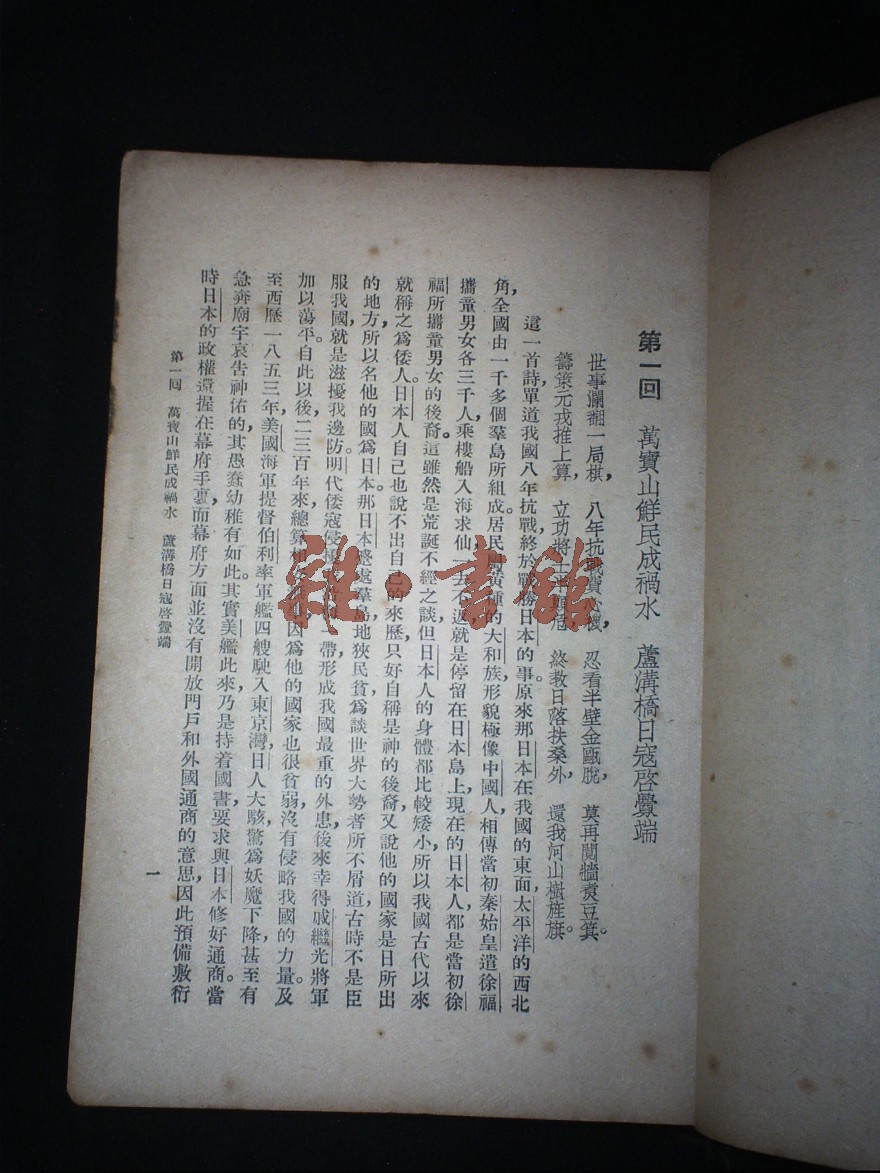 第一回　萬寶山鮮民成禍水　蘆溝橋日寇啓釁端
世事瀾翻一局棋，八年抗戰費　懷，忍看半壁金甌脫，莫再鬩牆煑豆箕。
籌策元戎推上算，立功將士半　危，終敎日落扶桑外，還我河山樹旌旗。
這一首詩，單道我國八年抗戰，終於戰勝日本的事。原來那日本在我國的東面，太平洋的西北
角，全國由一千多個羣島所組成。居民　黃種的大和族，形貌極像中國人，相傳當初秦始皇遣徐福
攜童男女各三千人，乘樓船入海求仙，一去不返，就是停留在日本島上，現在的日本人，都是當初徐
福所攜童男女的後裔。這雖然是荒誕不經之談，但日本人的身體都比較矮小，所以我國古代以來
就稱之爲倭人。日本人自己也說不出自己的來歷，只好自稱是神的後裔，又說他的國家是日所出
的地方，所以名他的國爲日本。那日本　處羣島，地狹民貧，爲談世界大勢者所不屑道，古時不是臣
服我國，就是滋擾我邊防。明代倭寇侵　帶，形成我國最重的外患，後來幸得戚繼光將軍
加以蕩平。自此以後，二三百年來，總算相　因爲他的國家也很貧弱，沒有侵略我國的力量。及
至西歷一八五三年，美國海軍提督伯利率軍艦四艘駛入東京灣，日人大駭，驚爲妖魔下降，甚至有
急奔廟宇，哀告神佑的，其愚蠢幼稚有如此。其實美艦此來，乃是持着國書，要求與日本修好通商。當
時日本的政權還握在幕府手裏，而幕府方面並沒有開放門戶和外國通商的意思，因此預備敷衍
第一回　萬寶山鮮民成禍水　蘆溝橋日寇啓釁端
一
雜·書館